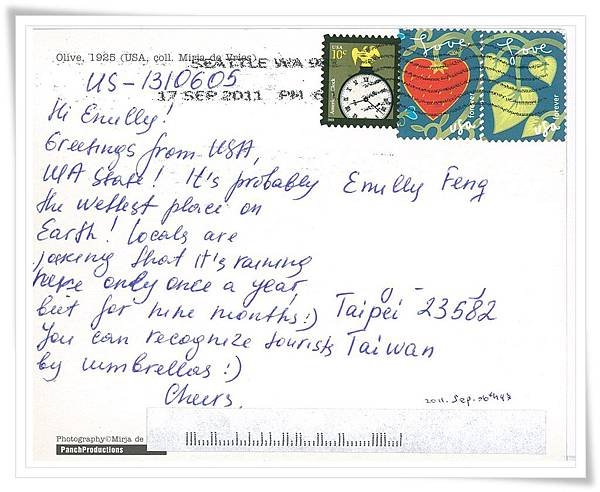 Olive, 1925 (USA, coll. Mirja de Vries)
SEATTLE WA
17 SEP 2011 PM
US-1310605
Hi Emilly!
Greetings from USA,
WA state! It's probably
the wettest place on
Earth! Locals are
joking that it's raining
here only once a year,
but for nine months:)
You can recognize tourists
by umbrellas:)
Cheers.
Emilly Feng
Taipei 23582
Taiwan
2011. Sep.
USA
10c
Love
usa forever
Love
usa forever
Photography©Mirja de
PanchProductions